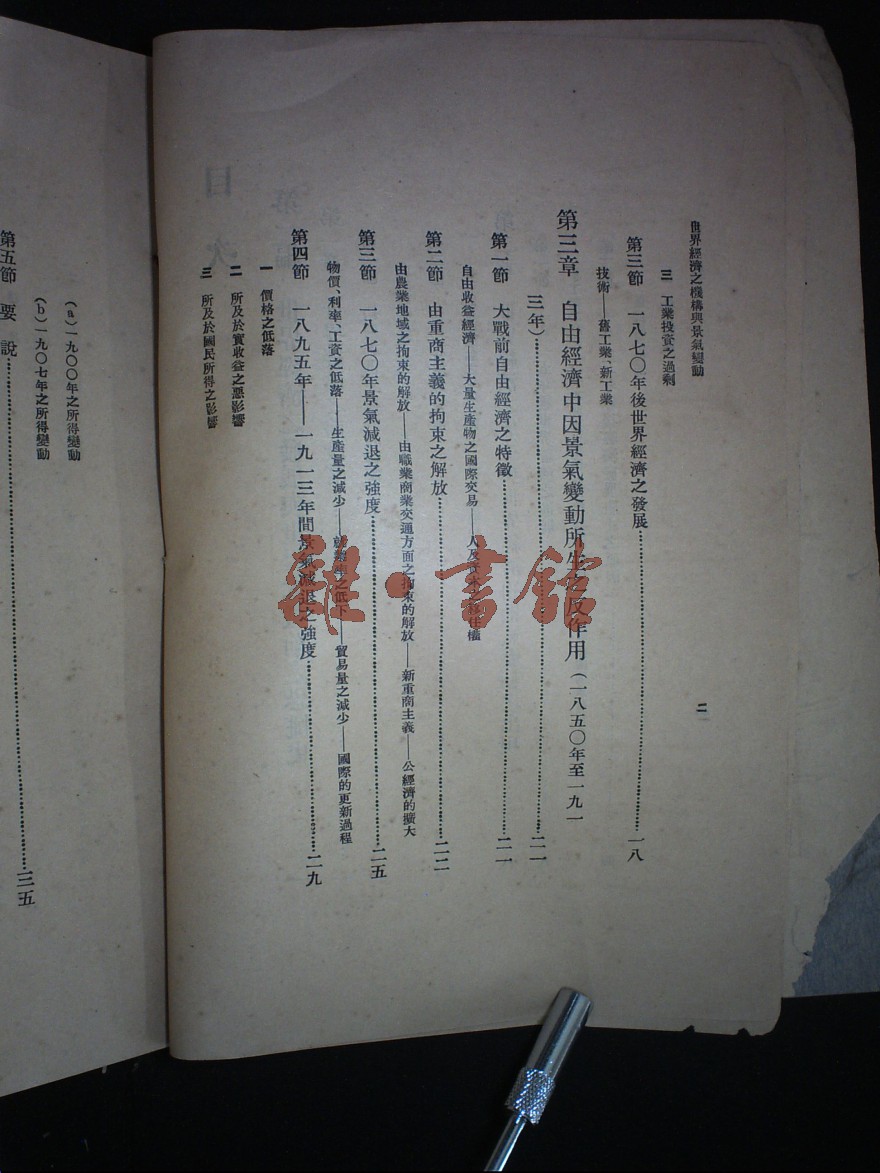 世界經濟之機構與景氣變動
二
三 工業投資之過剩
第三節 一八七〇年後世界經濟之發展……一八
技術——舊工業、新工業
第三章 自由經濟中因景氣變動所生之反作用(一八五〇年至一九一
三年)……二一
第一節 大戰前自由經濟之特徵……二一
自由收益經濟——大量生產物之國際交易——人及資本之移住
第二節 由重商主義的拘束之解放……二二
由農業地域之拘束的解放——由職業商業交通方面之拘束的解放——新重商主義——公經濟的擴大
第三節 一八七〇年景氣減退之強度……二五
物價、利率、工資之低落——生產量之減少——之低下——貿易量之減少——國際的更新過程
第四節 一八九五年——一九一三年間景氣減退之強度……二九
一 價格之低落
二 所及於實收益之惡影響
三 所及於國民所得之影響
(a)一九〇〇年之所得變動
(b)一九〇七年之所得變動
第五節 要說……三五
雜·書館